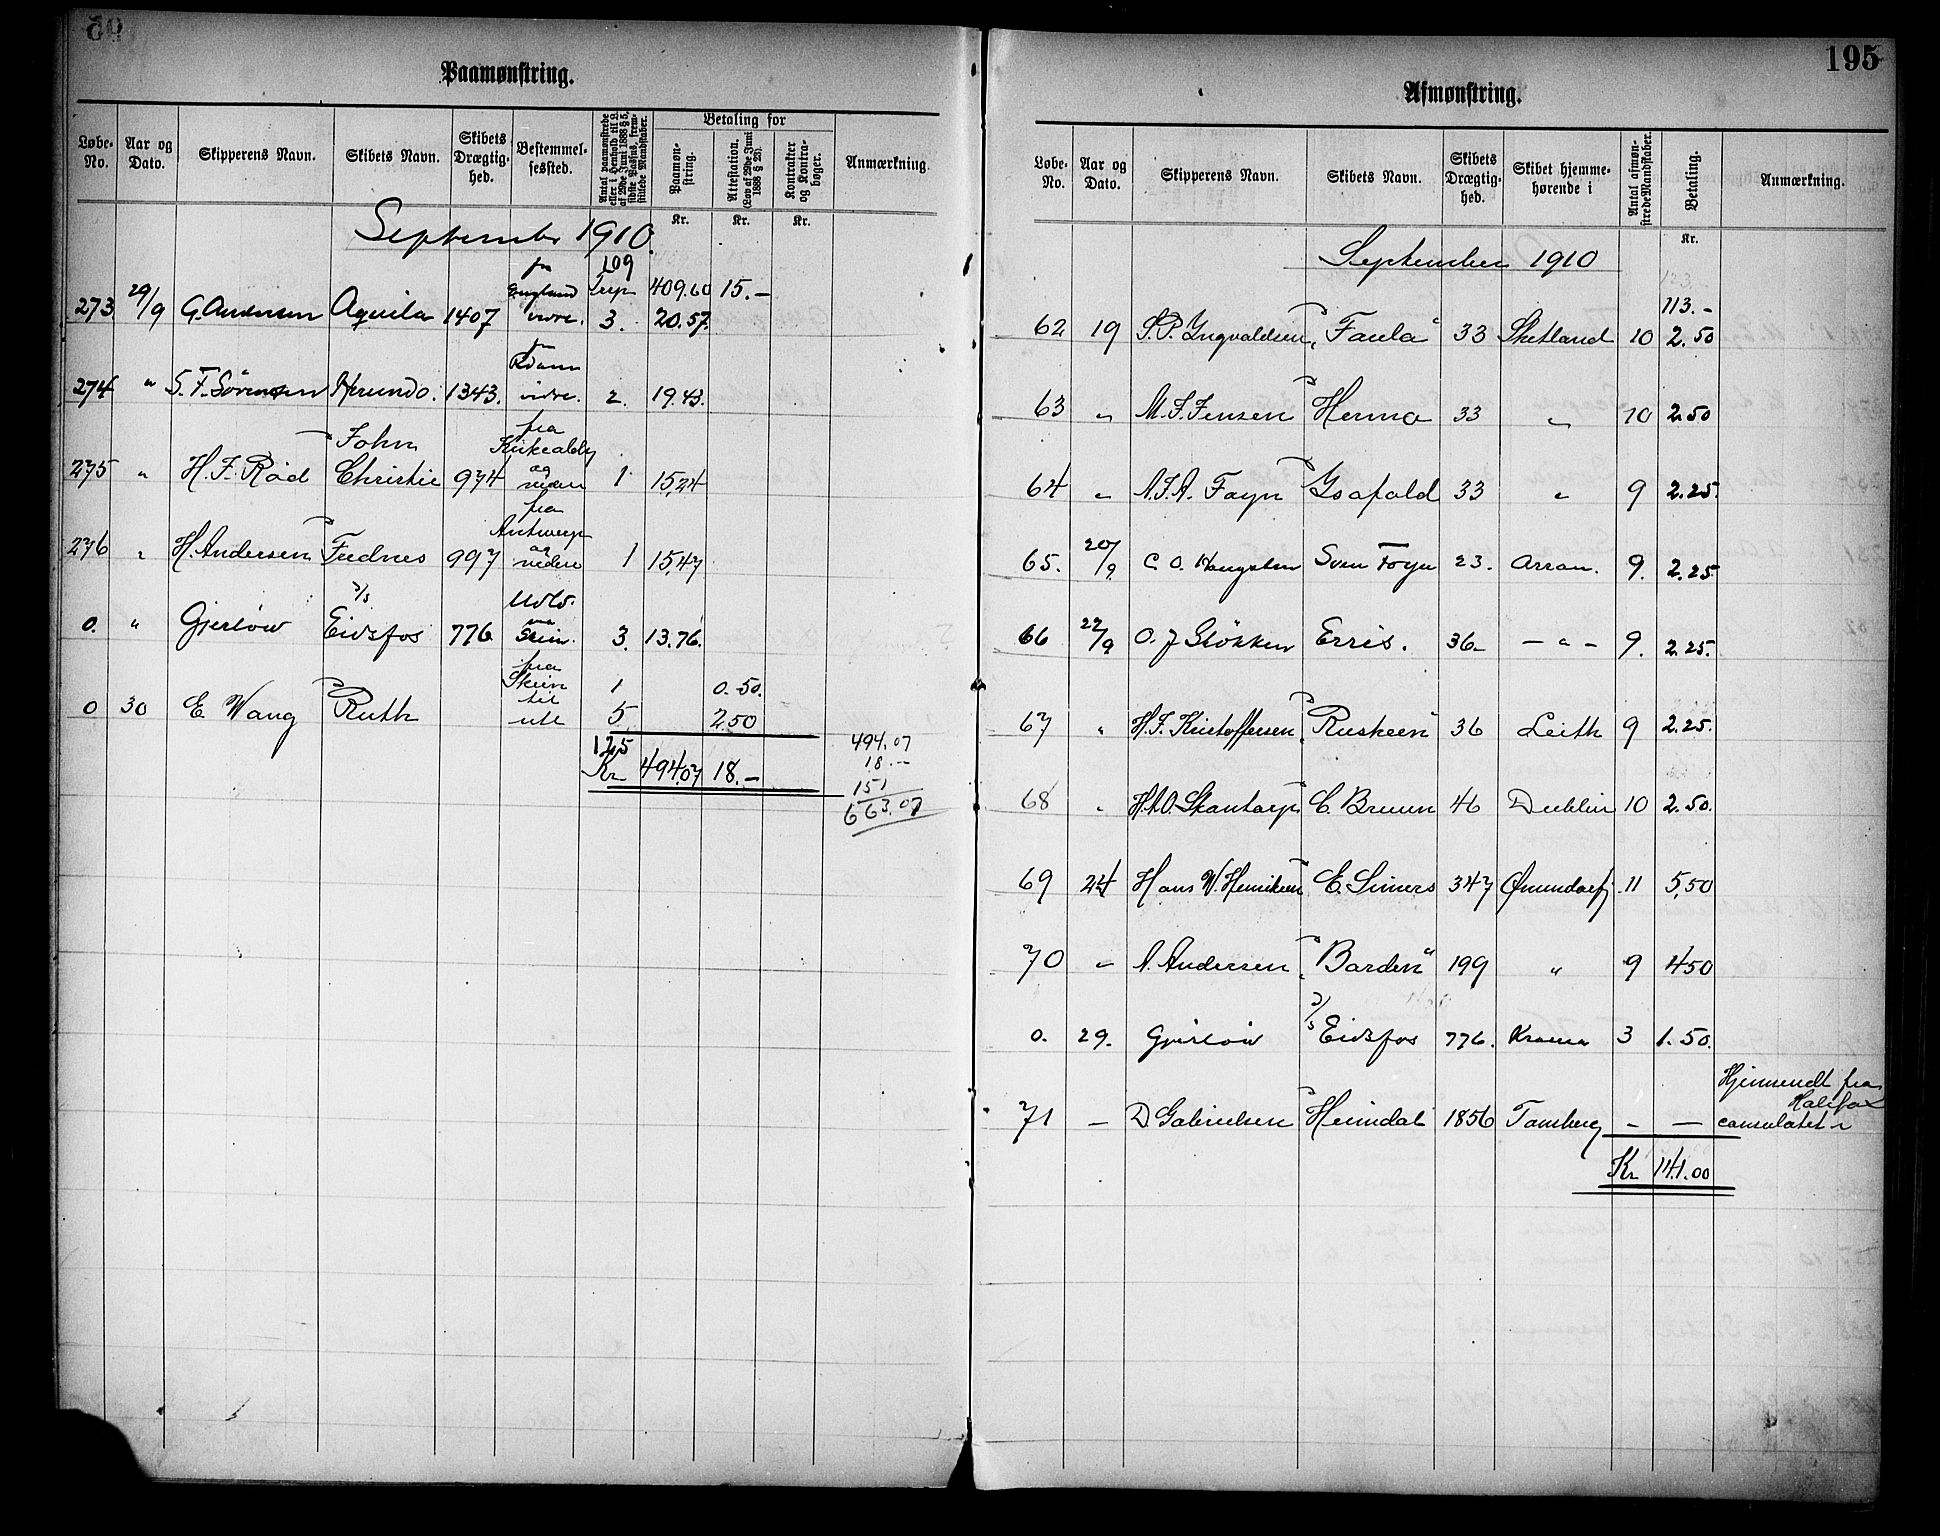 Paamønstring.
Løbe-No. Aar og Dato. Skipperens Navn. Skibets Navn. Skibets Drægtig-hed. Bestemmel-sessted. Antal paamønstrede eller i Henhold til L. af 29de Juni 1888 § 5, sidste Passus, frem-stillede Mandskaber. Betaling for Paamøn-string. Attestation. (Lov af 29de Juni 1888 § 25). Kontrakter og Kontra-bøger. Anmærkning.
Kr. Kr. Kr.
September 1910.
109
409.60 15.-
273 29/9 G. Andersen Aquila 1407 fra England vidre. 3. 20.57.
274 " S. F. Sørensen Hirundo. 1343. vidre. 2. 19.43.
275 " H. F. Rød John Christie 974 fra Kirkcaldy og videre 1 15,24
276 " H. Andersen Frednes 997 fra Antwerpen og videre 1 15,47
0. " Gjerløw D/S Eidsfos 776 Skien. 3. 13.76.
1 0.50.
0 30 E Wang Ruth fra Skien til 5 2.50
125
Kr 494.07 18.-
494.07
18.-
151
663.07
195
Afmønstring.
Løbe-No. Aar og Dato. Skipperens Navn. Skibets Navn. Skibets Drægtig-hed. Skibet hjemme-hørende i Antal afmøn-strede Mandskaber. Betaling. Anmærkning.
Kr.
September 1910
113.-
62 19 S. P. Ingvaldsen "Faula" 33 Shetland 10 2.50
63 " M. F. Jensen Herma 33 " 10 2.50
64 " A. F. A. Foyn Ysafold 33 " 9 2.25.
65. 20/9 C. O. Sven Foyn 23. Arran. 9. 2.25
66 22/9 O. J Støkken Erris. 36- - " - 9. 2.25.
67 " H. F. Kristoffersen "Ruskeen" 36 Leith 9 2.25.
68 " C. Bruun 46 Dublin 10 2.50.
69 24 Hans W. Henriksen E. Siners 347 11 5,50
70 " A. Andersen "Barden" 199 " 9 4.50
0. 29. Gjerløw D/S Eidsfos 776. Krania 3 1.50.
71 - D Gabrielsen Heimdal 1856 Tønsberg - - Hjemsendt fra Halifax consulatet
Kr 141.00